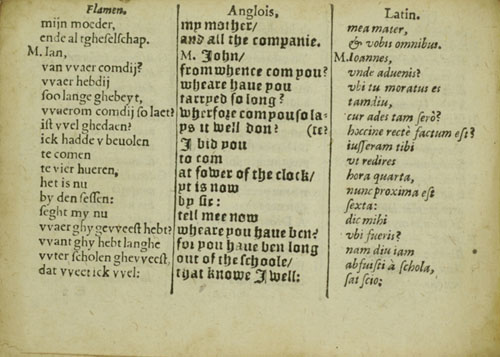 Flamen.
mijn moeder,
ende al tgheſelſchap.
M. Ian,
van vvaer comdij?
vvaer hebdij
ſoo lange ghebeyt,
vvuerom comdij ſo laet?
iſt vvel ghedaen?
ick hadde v beuolen
te comen
te vier hueren,
het is nu
by den ſeſſen:
ſeght my nu
vvaer ghy gevveeſt hebt?
vvant ghy hebt langhe
vvter ſcholen ghevveeſt,
dat vveet ick vvel:
Anglois,
my mother/
and all the companie.
M. John/
from whence com you?
wheare haue you
tarryed so long?
wherfore com you so la-
ys it well don? (te?
I bid you
to com
at fower of the clock/
yt is now
by six:
tell mee now
wheare you haue ben?
for you haue ben long
out of the ſchoole/
that knowe I well:
Latin.
mea mater,
& vobis omnibus.
M. Ioannes,
vnde aduenis?
vbi tu moratus es
tamdiu,
cur ades tam ſerò?
hæccine rectè factum eſt?
iuſſeram tibi
vt redires
hora quarta,
nunc proxima eſt
ſexta:
dic mihi
vbi fueris?
nam diu iam
abfuiſti à ſchola,
ſat ſcio;